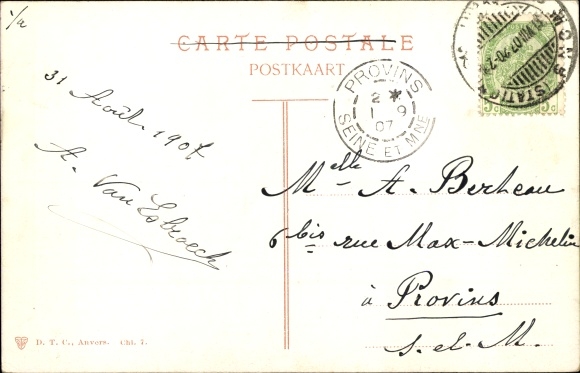 1/a
CARTE POSTALE
POSTKAART
31 Août 1907
A. Van Esbroeck
PROVINS
2 *
1 9
07
SEINE ET MNE
STATION
5c
Melle A. Berheau
6 bis rue Max-Michelin
à Provins
S.-et-M.
D. T. C., Anvers. Chl. 7.